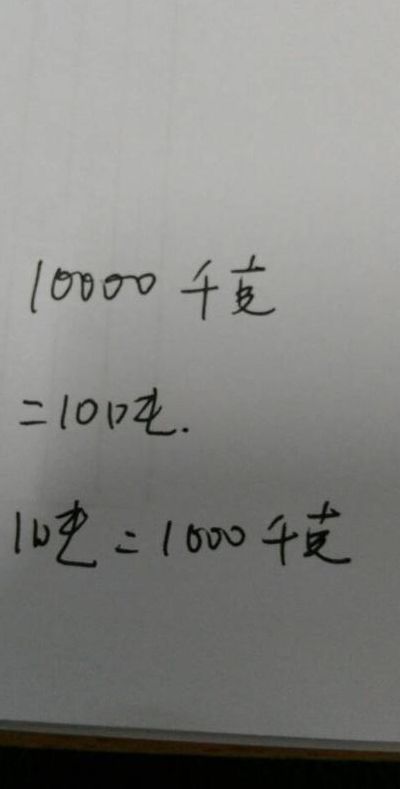 10000千克
=10吨.
1吨=1000千克